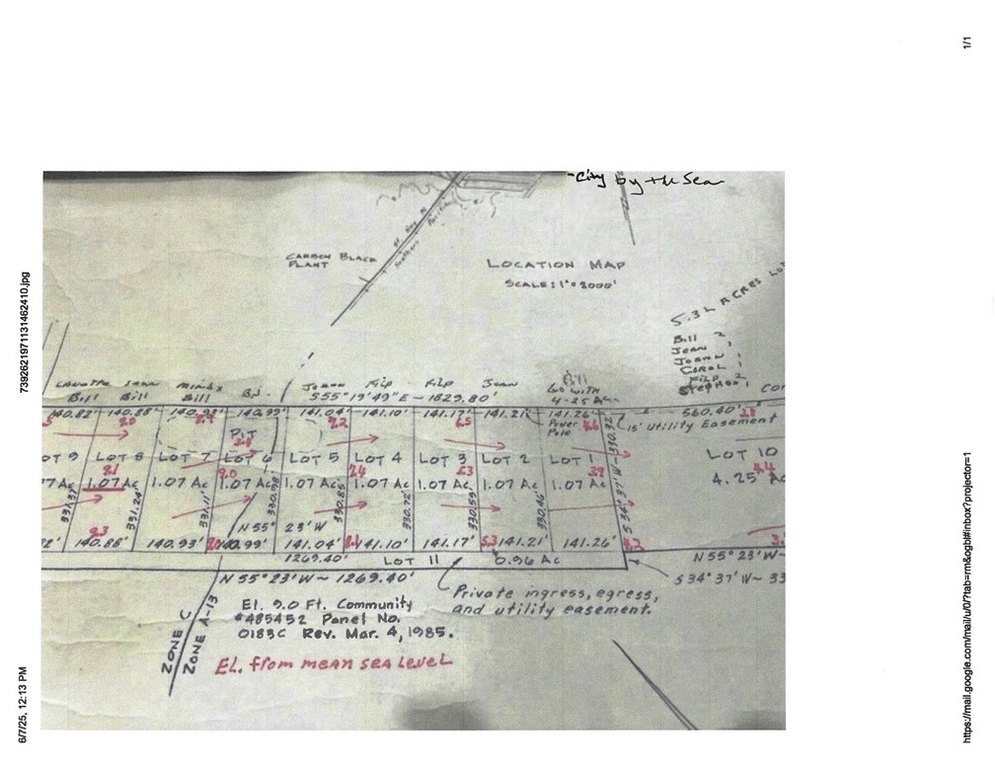 6/7/25, 12:13 PM
7392621971131462410.jpg
-City by the Sea
CARBON BLACK
PLANT
LOCATION MAP
SCALE: 1" = 2000'
5.32 ACRES
Bill
Joan
JoAnn
CAROL
Filp
Stephen
Bill Bill Bill BJ. JoAnn Filp Filp Joan Bill
Go with
4.25 Ac
S55°19'49"E ~ 1829.80'
140.82' 140.88' 140.93' 140.99' 141.04' 141.10' 141.17' 141.21' 141.26' 560.40'
Power
Pole
15' Utility Easement
PIT
LOT 9 LOT 8 LOT 7 LOT 6 LOT 5 LOT 4 LOT 3 LOT 2 LOT 1 LOT 10
1.07 Ac 1.07 Ac 1.07 Ac 1.07 Ac 1.07 Ac 1.07 Ac 1.07 Ac 1.07 Ac 4.25 Ac
331.37' 331.24' 331.11' 330.98' 330.85' 330.72' 330.59' 330.46' S 34° 37' W ~ 330.32'
N 55° 23' W
140.88' 140.93' 140.99' 141.04' 141.10' 141.21' 141.26'
1269.40' LOT 11 0.96 Ac
N 55° 23' W ~ 1269.40'
N 55° 23' W ~
S 34° 37' W ~ 33
Private ingress, egress,
and utility easement.
El. 9.0 Ft. Community
#485452 Panel No.
0183C Rev. Mar. 4, 1985.
ZONE C
ZONE A-13
EL. from mean sea level
https://mail.google.com/mail/u/0/?tab=rm&ogbl#inbox?projector=1
1/1